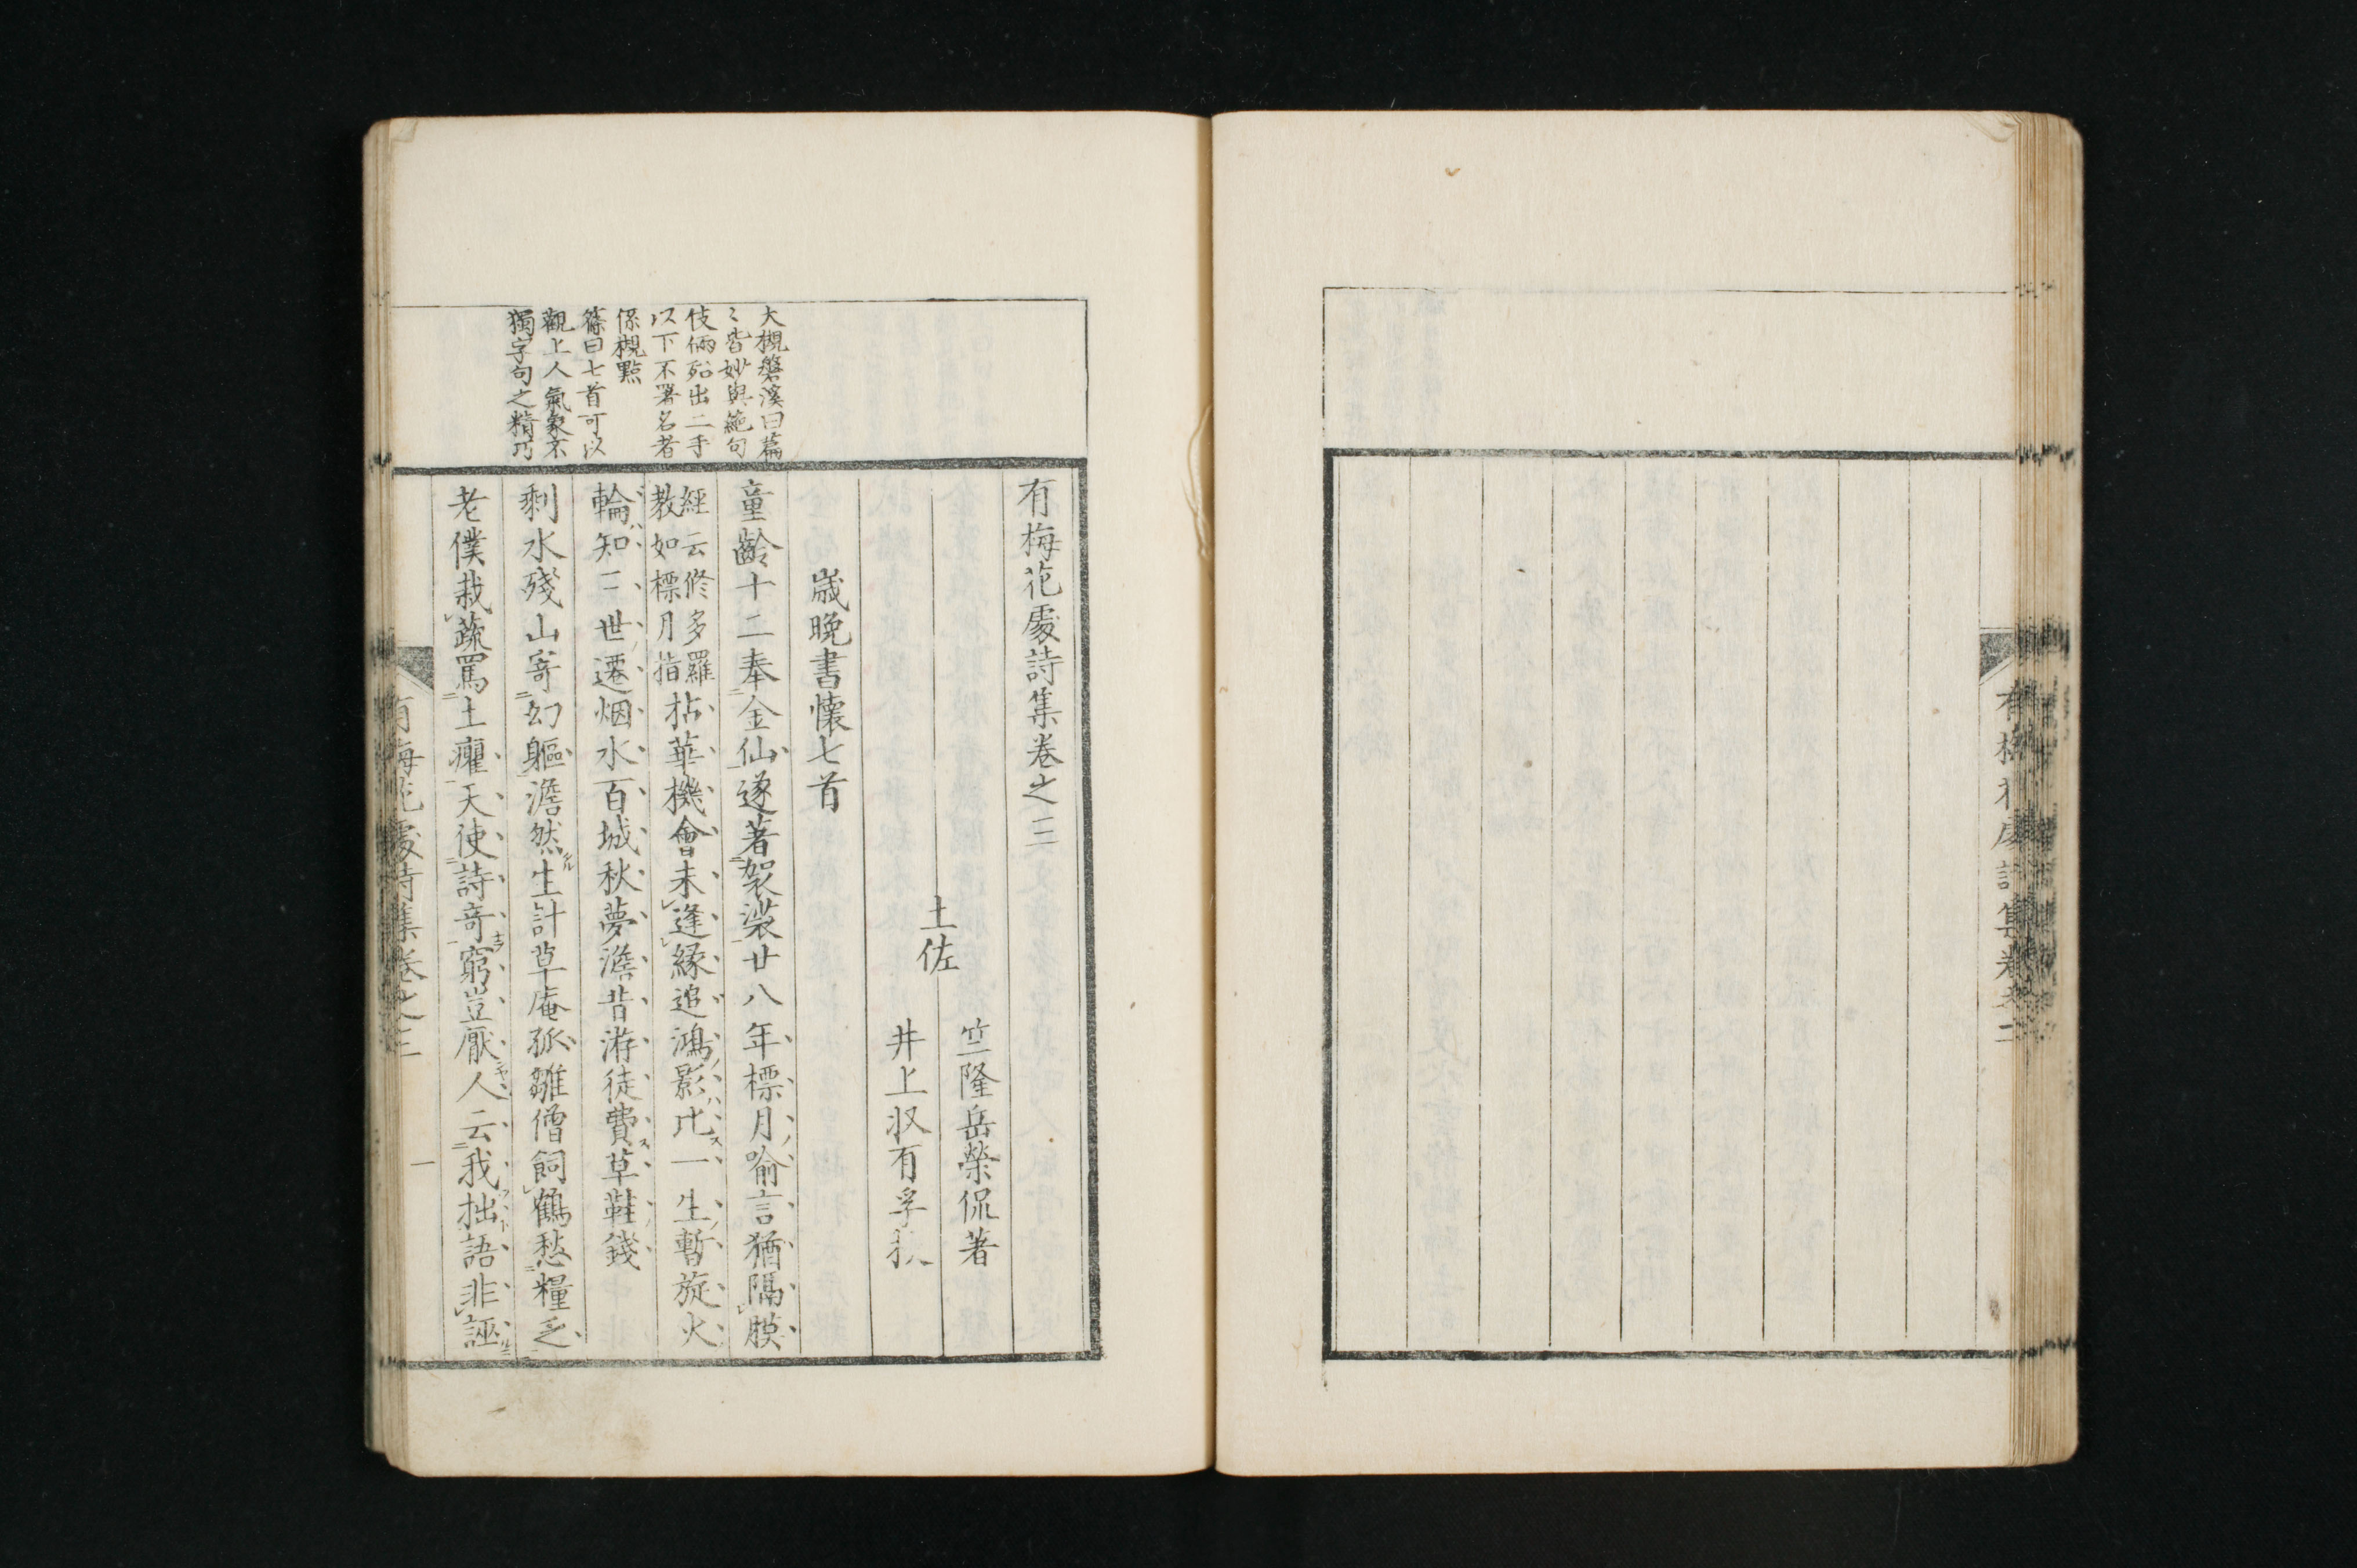 有梅花處詩集卷之二
大槻磐溪曰篇
〻皆妙與絶句
伎倆殆出二手
以下不署名者
係槻點
篠曰七首可以
觀上人氣象不
獨字句之精巧
有梅花處詩集卷之三
土佐
竺隆岳榮侃著
井上収有孚
歲晚書懷七首
童齡十二奉金仙遂著袈裟廿八年標月喻言猶隔膜
經云修多羅
教如標月指
拈華機會未逢緣追鴻影比一生暫旋火
輪知三世遷烟水百城秋夢澹昔游徒費草鞋錢
剩水殘山寄幻軀澹然生計草庵孤雛僧飼鶴愁糧乏
老僕栽蔬罵土癯天使詩奇窮豈厭人云我拙語非誣
有梅花處詩集卷之三
一